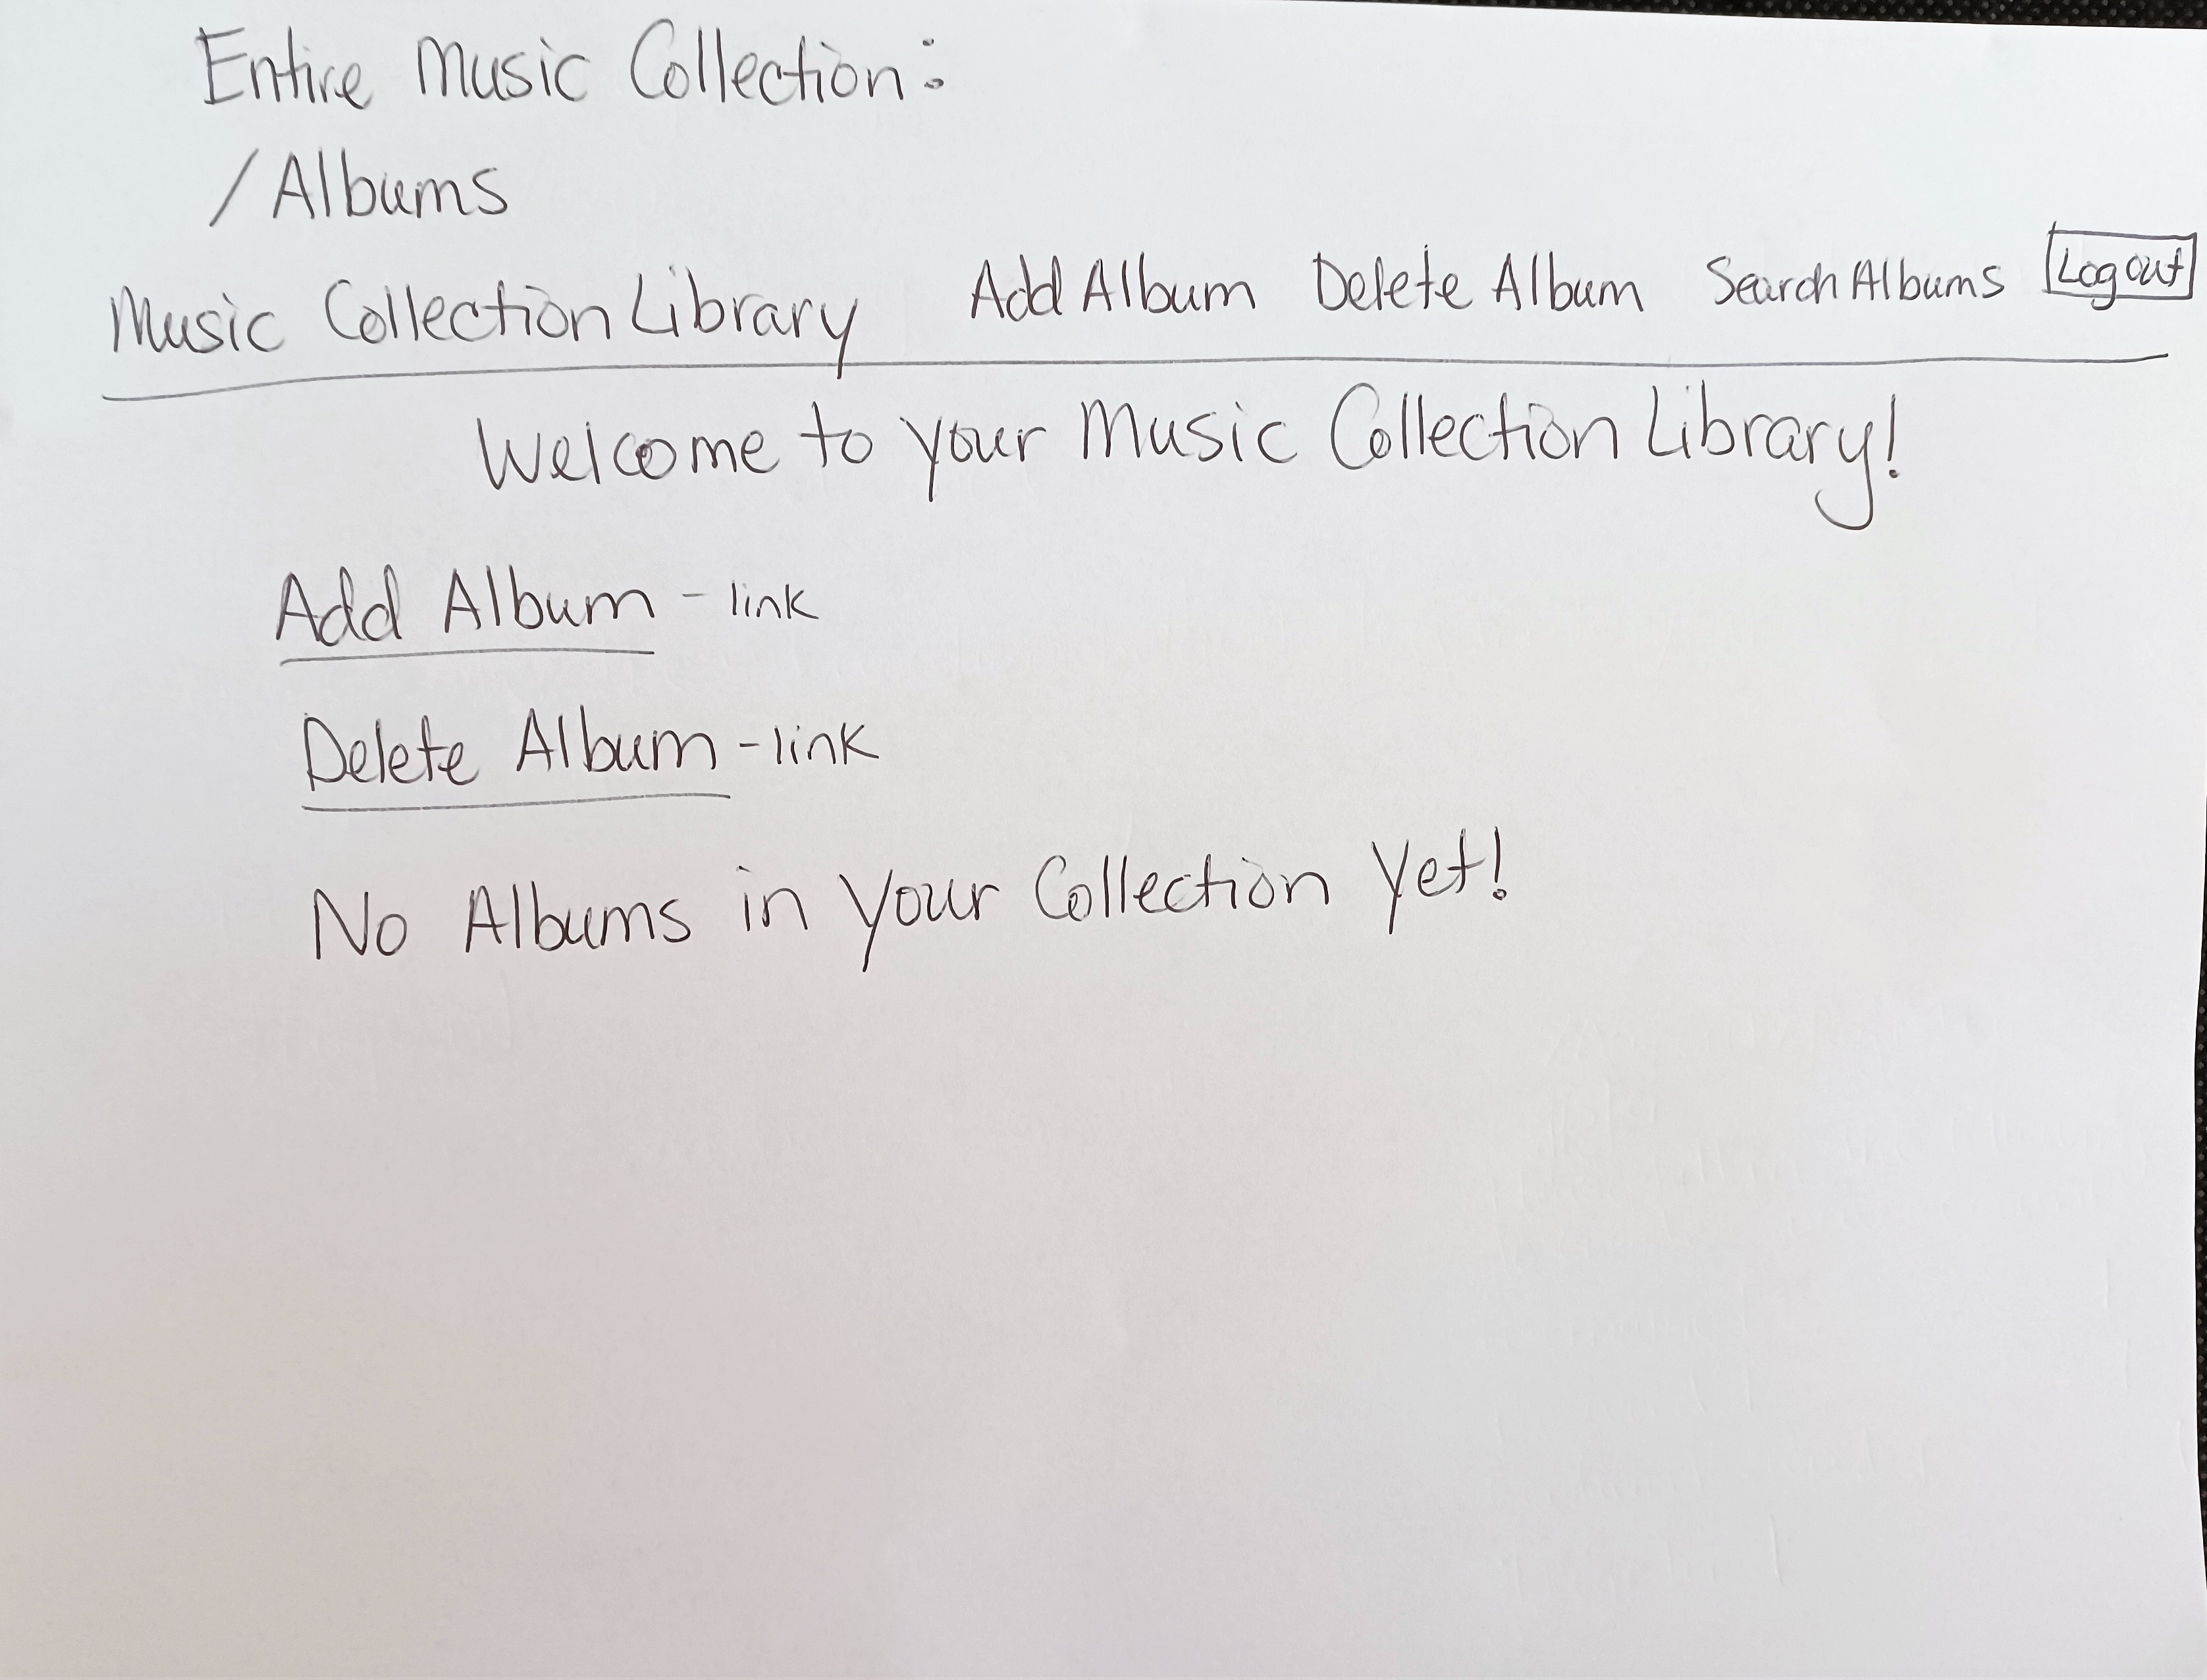 Entire Music Collection:
/Albums
Music Collection Library Add Album Delete Album Search Albums Logout
Welcome to your Music Collection Library!
Add Album - link
Delete Album - link
No Albums in your Collection Yet!